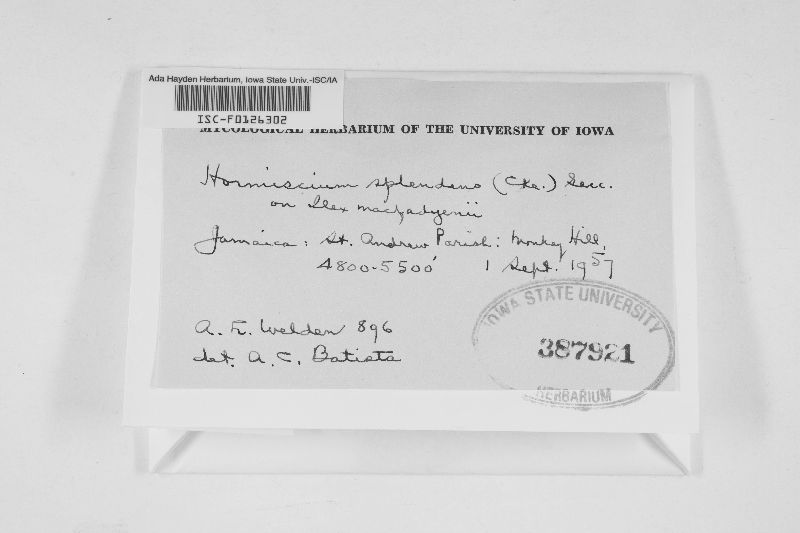 Ada Hayden Herbarium, Iowa State Univ.-ISC/IA
ISC-F0126302
MYCOLOGICAL HERBARIUM OF THE UNIVERSITY OF IOWA
Hormiscium splendens (Cke.) Sacc.
on Ilex macfadyenii
Jamaica: St. Andrew Parish: Monkey Hill,
4800-5500' 1 Sept. 1957
A. L. Welden 896
det. A. C. Batista
IOWA STATE UNIVERSITY
387921
HERBARIUM